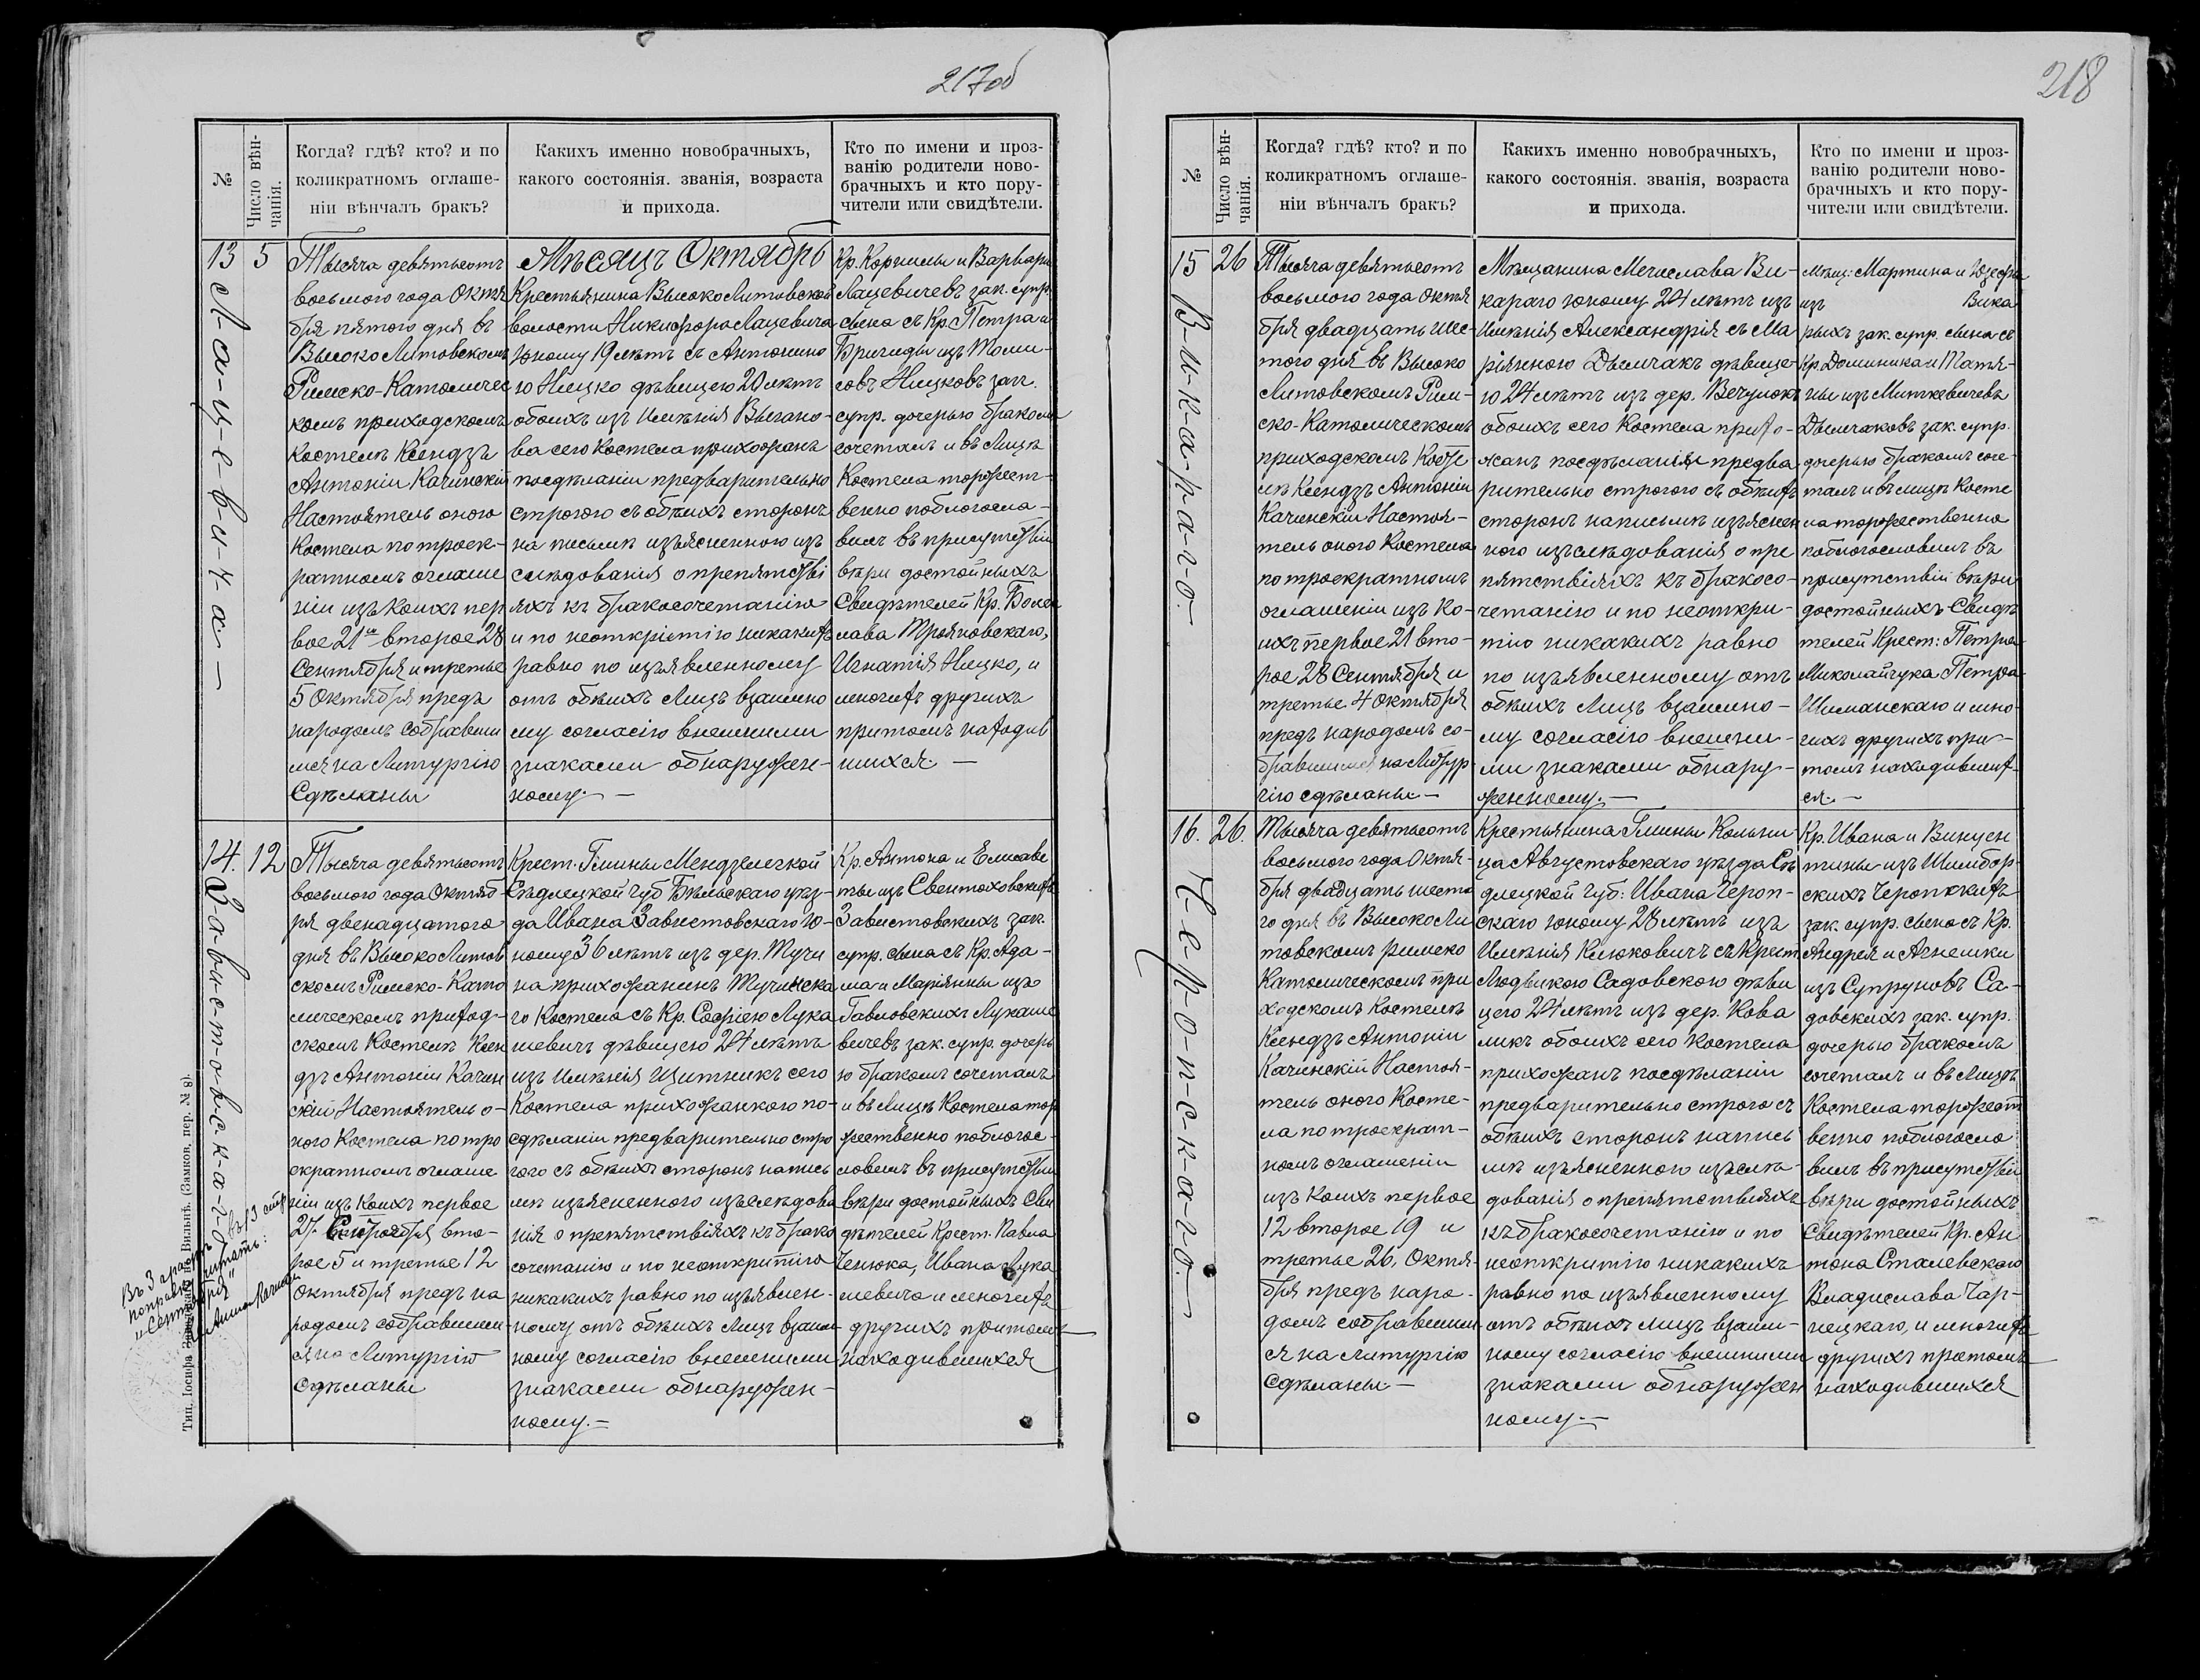 217об
№
Число вѣн-
чанія.
Когда? гдѣ? кто? и по
коликратномъ оглаше-
ніи вѣнчалъ бракъ?
Какихъ именно новобрачныхъ,
какого состоянія. званія, возраста
и прихода.
Кто по имени и проз-
ванію родители ново-
брачныхъ и кто пору-
чители или свидѣтели.
13
5
Л-а-ц-е-в-и-ч-а-
Тысяча девятьсотъ
восьмого года Октя
бря пятого дня въ
ВысокоЛитовскомъ
Римско-Католичес
комъ приходскомъ
Костелѣ Ксендзъ
Антоній Качинскій
Настоятель оного
Костела по троек-
ратномъ оглаше
ніи изъ коихъ пер
вое 21го второе 28
Сентября и третье
5 Октября предъ
народомъ собравши
мся на Литургію
Сдѣланы
Мѣсяцъ Октябрь
Крестьянина ВысокоЛитовской
волости Никифора Лацевича
юношу 19 лѣтъ съ Антонино
ю Ницко дѣвицею 20 лѣтъ
обоихъ изъ имѣнія Выгано-
ва сего Костела прихожанъ
посдѣланіи предварительно
строгого съ обѣихъ сторонъ
на письмѣ изъясненного изъ
слѣдованія о препятстві
яхъ къ бракосочетанію
и по неоткрітію никакихъ
равно по изъявленному
отъ обѣихъ Лицъ взаимно
му согласію внешними
знаками обнаружен-
ному.-
Кр. Корнилы и Варвары
Лацевичевъ зак. супр.
сына съ Кр. Петра и
Бригиды изъ Томи-
совъ Ницковъ зак.
супр. дочерью бракомъ
сочеталъ и въ Лицѣ
Костела торжест-
венно поблагосла-
вилъ въ присутствіи
вѣри достойныхъ
Свидѣтелей Кр. Болес
лава Трояновскаго,
Игнатія Ницко, и
многихъ другихъ
притомъ находив
шихся.-
14.
12
З-а-в-и-с-т-о-в-с-к-а-г-о
Тысяча девятьсотъ
восьмого года Октяб-
ря двенадцатого
дня въ ВысокоЛитов
скомъ Римско-Като
лическомъ приход-
скомъ Костелѣ Ксен
дзъ Антоній Качин
скій Настоятель о-
ного Костела по тро
екратномъ оглаше
ніи изъ коихъ первое
27. Сентября вто-
рое 5 и третье 12
октября предъ на
родомъ собравшим-
ся на Литургію
Сдѣланы
Крест. Гмины Мендзилеcкой
Сѣдлецкой Губ Бѣльскаго уѣз-
да Ивана Завистовскаго ю-
ношу 36 лѣтъ изъ дер. Тучи
на прихожанинъ Тучинска
го Костела съ Кр. Софіею Лука
шевичъ дѣвицею 24 лѣтъ
изъ имѣнія Щитникъ сего
Костела прихожанкого по-
сдѣланіи предварительно стро
гого съ обѣихъ сторонъ напись
мѣ изъясненного изъслѣдова
нія о препятствіяхъ къ брако
сочетанію и по неоткритію
никакихъ равно по изъявлен-
ному отъ обѣихъ Лицъ взаим
ному согласію внешними
знаками обнаружен-
ному.-
Кр. Антона и Елисаве
ты изъ Свентоховскихъ
Завистовскихъ зак.
супр. сына съ Кр. Ада-
ма и Маріянны изъ
Гавловскихъ Лукаше
вичевъ зак. супр. дочерь
ю бракомъ сочеталъ
и въ Лицѣ Костела тор
жественно поблагос-
ловилъ въ присутствіи
вѣри достойныхъ Сви
дѣтелей Крест. Павла
Ченюка, Ивана Лука
шевича и многихъ
другихъ притомъ
находившихся
Въ 3 графѣ въ 13 стр
поправку читать:
"Сентября"
Тип. Іосифа Завадскаго въ Вильнѣ. (Замков. пер. № 8).
218
№
Число вѣн-
чанія.
Когда? гдѣ? кто? и по
коликратномъ оглаше-
ніи вѣнчалъ бракъ?
Какихъ именно новобрачныхъ,
какого состоянія. званія, возраста
и прихода.
Кто по имени и проз-
ванію родители ново-
брачныхъ и кто пору-
чители или свидѣтели.
15
26
В-и-к-а-р-а-г-о.
Тысяча девятьсотъ
восьмого года Октя
бря двадцать шес-
того дня въ Высоко
Литовскомъ Рим-
ско-Католическомъ
приходскомъ Косте-
лѣ Ксендзъ Антоній
Качинскій Настоя-
тель оного Костела
по троекратномъ
оглашеніи изъ ко-
ихъ первое 21 вто-
рое 28 Сентября и
третье 4 Октября
предъ народомъ со-
бравшимся на Литур
гію сдѣланы-
Мѣщанина Мечислава Ви-
караго юношу 24 лѣтъ изъ
имѣнія Александрія съ Ма
ріянною Дымчакъ дѣвице-
ю 24 лѣтъ изъ дер. Вечулокъ
обоихъ сего Костела прихо-
жанъ посдѣланія предва
рительно строгого съ обѣихъ
сторонъ написьмѣ изъяснен
ного изъслѣдованія о пре
пятствіяхъ къ бракосо-
четанію и по неоткри-
тію никакихъ равно
по изъявленному отъ
обѣихъ Лицъ взаимно-
му согласію внешни-
ми знаками обнару-
женному.-
Мѣщ: Мартина и Юзефы
изъ Вика
рыхъ зак. супр. сына съ
Кр. Доминика и Татя-
ны изъ Миткевичевъ
Дымчаковъ зак. супр.
дочерью бракомъ соче-
талъ и въ лицѣ Косте
ла торжественно
поблагословилъ въ
присутствіи вѣри
достойныхъ Свидѣ
телей Крест: Петра
Миколайчука Петра
Шиманскаго и мно
гихъ другихъ при-
томъ находивших
ся.-
16.
26.
Ч-е-р-о-п-с-к-а-г-о-
Тысяча девятьсотъ
восьмого года Октя-
бря двадцать шесто
го дня въ ВысокоЛи
товскомъ римско
Католическомъ при
ходскомъ Костелѣ
Ксендзъ Антоній
Качинскій Настоя-
тель оного Косте-
ла по троекрат-
номъ оглашеніи
изъ коихъ первое
12 второе 19 и
третье 26. Октя-
бря предъ наро-
домъ собравшим
ся на литургію
Сдѣланы-
Крестьянина Гмины Кольни
ца Августовскаго уѣзда Сѣ
длецкой Губ: Ивана Череп-
скаго юношу 28 лѣтъ изъ
имѣнія Клюковичъ съ Крест.
Людвикою Садовскою дѣви
цего 24 лѣтъ изъ дер. Кова
ликъ обоихъ сего костела
прихожанъ посдѣланіи
предварительно строго съ
обѣихъ сторонъ напись
мѣ изъясненного изъслѣ-
дованія о препятствіяхъ
къ бракосочетанію и по
неоткритію никакихъ
равно по изъявленному
отъ обѣихъ лицъ взаим-
ному согласію внешними
знаками обнаружен
ному.-
Кр. Ивана и Винцен
тины изъ Шимбор-
скихъ
зак. супр. сына съ Кр.
Андрея и Агнешки
изъ Супруновъ Са-
довскихъ зак. супр.
дочерью бракомъ
сочеталъ и въ Лицѣ
Костела торжест
венно поблагосло
вилъ въ присутствіи
вѣри достойныхъ
Свидѣтелей Кр. Ан
тона Сталевскаго
Владислава Чар-
нецкаго, и многихъ
другихъ притомъ
находившихся